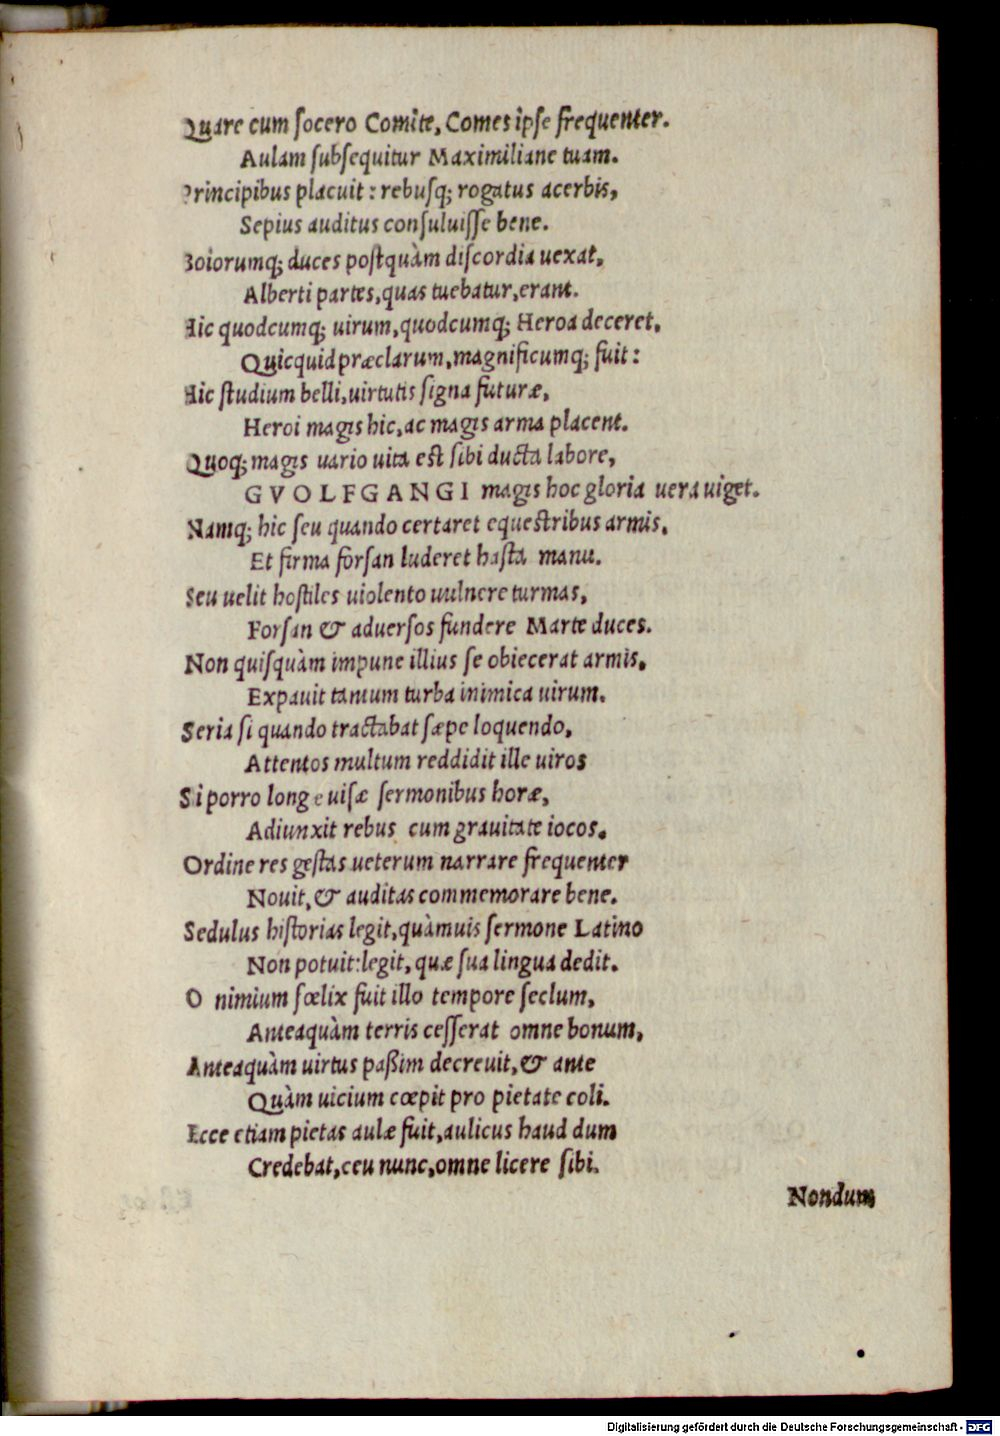 Quare cum socero Comite, Comes ipse frequenter.
Aulam subsequitur Maximiliane tuam.
Principibus placuit: rebusq; rogatus acerbis,
Sepius auditus consuluisse bene.
Boiorumq; duces postquàm discordia uexat,
Alberti partes, quas tuebatur, erant.
Hic quodcumq; uirum, quodcumq; Heroa deceret,
Quicquid præclarum, magnificumq; fuit:
Hic studium belli, uirtutis signa futuræ,
Heroi magis hic, ac magis arma placent.
Quoq; magis uario uita est sibi ducta labore,
GVOLFGANGI magis hoc gloria uera uiget.
Namq; hic seu quando certaret equestribus armis,
Et firma forsan luderet hasta manu.
Seu uelit hostiles uiolento uulnere turmas,
Forsan & aduersos fundere Marte duces.
Non quisquàm impune illius se obiecerat armis,
Expauit tantum turba inimica uirum.
Seria si quando tractabat sæpe loquendo,
Attentos multum reddidit ille uiros
Si porro longe uisæ sermonibus horæ,
Adiunxit rebus cum grauitate iocos.
Ordine res gestas ueterum narrare frequenter
Nouit, & auditas commemorare bene.
Sedulus historias legit, quàmuis sermone Latino
Non potuit: legit, quæ sua lingua dedit.
O nimium fœlix fuit illo tempore seclum,
Anteaquàm terris cesserat omne bonum,
Anteaquàm uirtus paßim decreuit, & ante
Quàm uicium cœpit pro pietate coli.
Ecce etiam pietas aulæ fuit, aulicus haud dum
Credebat, ceu nunc, omne licere sibi.
Nondum
Digitalisierung gefördert durch die Deutsche Forschungsgemeinschaft - DFG